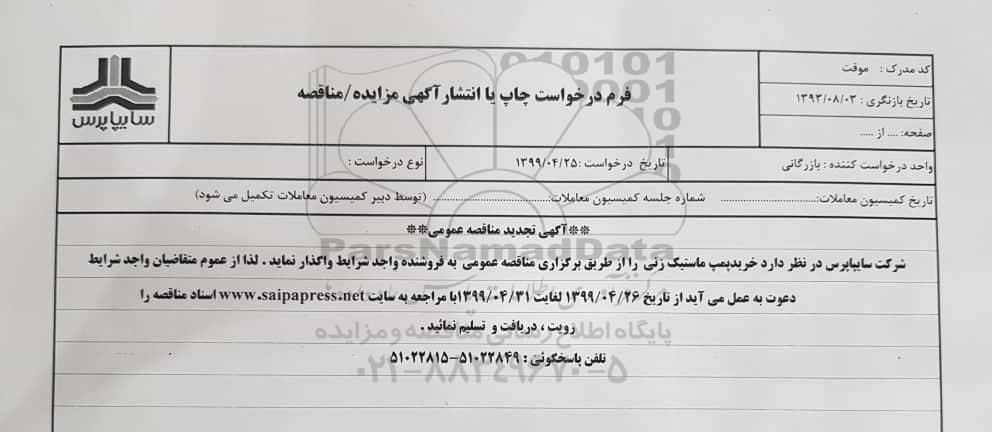 سایپاپرس
فرم درخواست چاپ یا انتشار آگهی مزایده/مناقصه
کد مدرک : موقت
تاریخ بازنگری : ۱۳۹۳/۰۸/۰۳
صفحه: .... از .....
واحد درخواست کننده : بازرگانی
تاریخ درخواست :۱۳۹۹/۰۴/۲۵
نوع درخواست :
تاریخ کمیسیون معاملات:.................................... شماره جلسه کمیسیون معاملات:.......................................... (توسط دبیر کمیسیون معاملات تکمیل می شود)
**آگهی تجدید مناقصه عمومی**
شرکت سایپاپرس در نظر دارد خریدپمپ ماستیک زنی را از طریق برگزاری مناقصه عمومی به فروشنده واجد شرایط واگذار نماید . لذا از عموم متقاضیان واجد شرایط
دعوت به عمل می آید از تاریخ ۱۳۹۹/۰۴/۲۶ لغایت ۱۳۹۹/۰۴/۳۱با مراجعه به سایت www.saipapress.net اسناد مناقصه را
رویت ، دریافت و تسلیم نمائید .
تلفن پاسخگوئی : ۵۱۰۲۲۸۴۹-۵۱۰۲۲۸۱۵
ParsNamadData
پایگاه اطلاع رسانی مناقصه و مزایده
۰۲۱-۸۸۳۴۹۶۷۰-۵